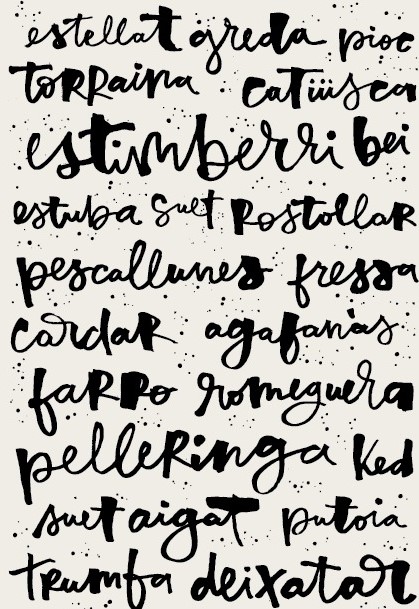 estellat greda pioc
torraina catüsca
estimberri bei
estuba suet Rostollar
pescallunes fressa
cardar agafanàs
farro romeguera
pelleringa ked
suet aigat putoia
trumfa deixatar